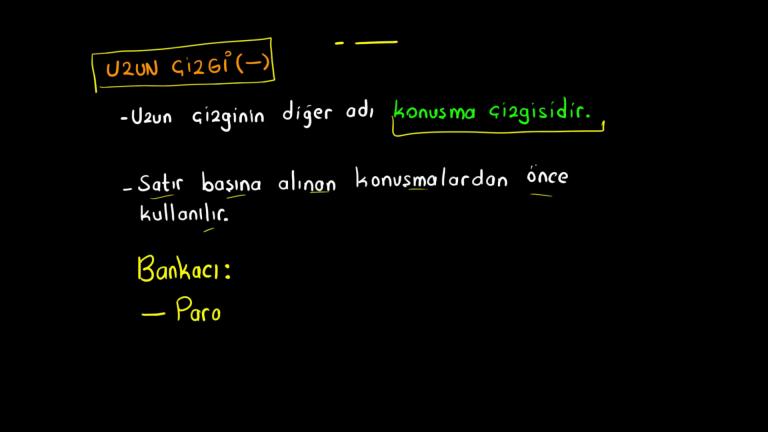 UZUN ÇİZGİ (—)
- Uzun çizginin diğer adı konuşma çizgisidir.
- Satır başına alınan konuşmalardan önce
kullanılır.
Bankacı:
— Para